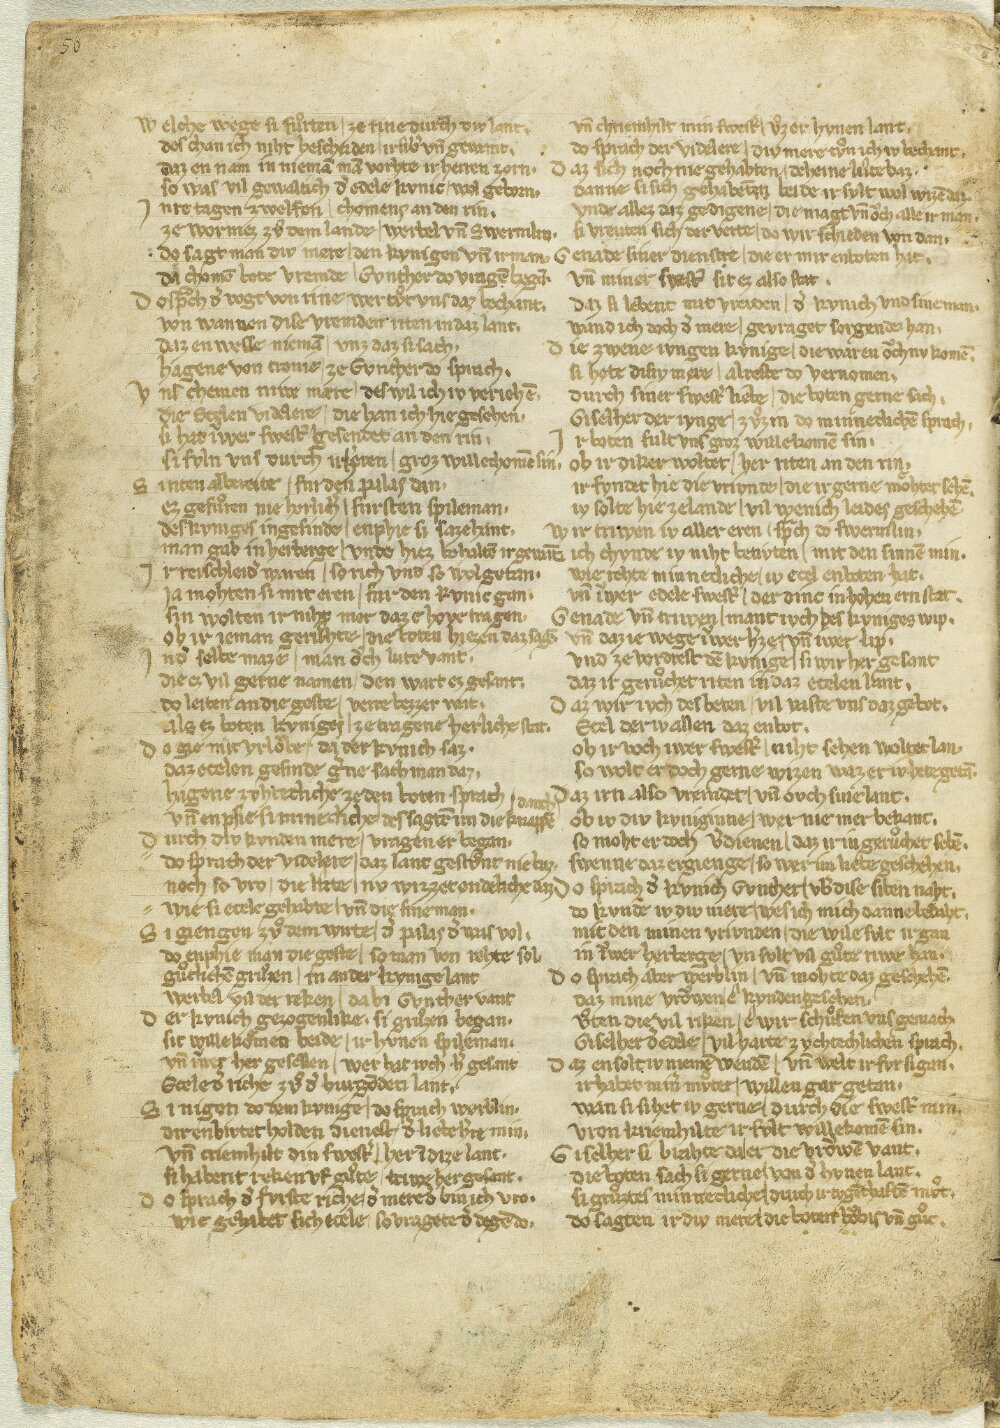 50
W elche wege si fuͦrten / ze rine durch div lant.
des chan ich niht bescheiden / ir silber vn̄ gewant.
daz en nam in niemā / mā vorhte ir herren zorn.
so was vil gewaltich / d̓ edele kvnic / wol geborn.
I nre tagen zwelfen / chomens an den rin.
ze wormez zv̊ dem lande / werbel vn̄ Swemlin.
do sagt man div mere / den kvnigen vn̄ ir man.
da chomē bote vremde / Gvnther do vragē began.
D o sp̄ch d̓ vogt von rine / wer tv̊t vns daz bechant.
von wannen dise vremden / riten in daz lant.
daz en wesse niemā / vnz daz si sach.
hagene von tronie / ze Gvnther do sprach.
V ns chomen niwe mere / des wil ich iv veriehē.
die Etzlen videlere / die han ich hie gesehen.
si hat iwer swest̓ / gesendet an den rin.
si svln vns durch ir herren / groz willechomē sin.
S i riten albereite / fur den palas dan.
ez gefuͦren nie herlich̓ / fursten spileman.
des kvniges ingesinde / enphie si sazehant.
man gab in herberge / vnde hiez behaltē ir gewāt.
I r reischleid̓ waren / so rich vnd so wol getan.
ia mohten si mit eren / fur den kvnic gan.
sin wolten ir niht mer / da ze hove tragen.
ob ir ieman geruͦchte / die boten hiezen daz sagē.
I n d̓ selbe maze / man ovch lute vant.
die ez vil gerne namen / den wart ez gesant.
do leiten an die geste / verre bezzer wat.
als ez boten kvniges / ze tragene herliche stat.
D o gie mit vrlovbe / da der kvnich saz.
daz etzelen gesinde / gerne sach man daz.
hagene zvhtecliche / ze den boten sprach /
vn̄ enphie si minecliche / des sagtē im die knappē danch.
D urch div kvnden mere / vragen er began.
do sprach der videlere / daz lant gestvnt nie baz.
noch so vro / die lvte / nv wizzet endeliche daz
wie si etzele gehabte / vn̄ die sine man.
S i giengen zv̊ dem wirte / d̓ palas d̓ was vol.
do enphie man die geste / so man von rehte sol
gutlichē gruͦzen / in ander kvnige lant
werbel vil der reken / da bi Gvnther vant
D er kvnich gezogenliche / si gruͦzen began.
sit willekomen beide / ir hvnen spileman.
vn̄ iwer her gesellen / wer hat ivch h̓ gesant
Etzele d̓ riche / zv̊ d̓ burgōden lant.
S i nigen do dem kvnige / do sprach werblin.
dir enbivtet holden dienest / d̓ liebe h̓re min.
vn̄ criemhilt din swest̓ / her in dize lant.
si habent reken vf guͦte / triwe her gesant.
D o sprach d̓ fvrste riche / d̓ mere d̓ bin ich vro.
wie gehabet sich etzele / so vragete d̓ degē do.
vn̄ chriemhilt min swest̓ / vz̓ er hvnen lant.
do sprach der videlere / div mere tvͦn ich iv bechant.
D az sich noch nie gehabten / deheine luͦte baz.
danne si sich gehabeten beide / ir svlt wol wizē daz
vnde allez daz gedigene / die magt vn̄ ovch alle ir man.
si vreuten sich der verte / do wir schieden von dan.
G enade siner dienste / die er mir enboten hat.
vn̄ miner swest̓ sit ez also stat.
daz si lebent mit vreuden / d̓ kvnich vnd sine man.
wand ich doch d̓ mere / gevraget sorgende han.
D ie zwene ivngen kvnige / die waren ovch nv komē.
si hete disiv mere / alreste do vernomen.
durch siner swest̓ liebe / die boten gerne sach.
Giselher der ivnge / zv̊ zin do minneclichē sprach.
I r boten svlt vns groz willekomē sin.
ob ir diker woltet / her riten an den rin.
ir fvndet hie die vrivnde / die ir gerne moͤhtet sehē.
iv solte hie ze lande / vil wenich leides geschehē.
W ir triwen iv aller eren / sp̄ch do swemlin.
ich chvnde iv niht betivten / mit den sinnē min.
wie rehte minnecliche / iv etzel enboten hat.
vn̄ iwer edele swest̓ / der dinc in hohen ern stat.
G enade vn̄ triwen / mant ivch des kvniges wip.
vn̄ daz ie wege iwer h̓ze / vn̄ iwer lip.
vnd ze vordrest dē kvnige / si wir her gesant
daz ir geruͦchet riten / in daz etzelen lant.
D az wir ivch des beten / vil vaste vns daz gebot.
Etzel der iv allen daz enbot.
ob ir ivch iwer swest̓ / niht sehen woltet lan.
so wolt er doch gerne wizen / waz er iv hete getā.
D az ir in also vremdet / vn̄ ovch sine lant.
ob iv div kvniginne / wer nie mer bekant.
so moht er doch v̓dienen / daz ir in geruͦchet sehē.
swenne daz ergienge / so wer im liebe geschehen.
D o sprach d̓ kvnich Gvnther / vb̓ dise siben naht.
do kvnde iv div mere / wes ich mich danne bedaht.
mit den minen vriunden / die wile svlt ir gan
in iwer herberge / vn̄ svlt vil guͦte rwe han.
D o sprach aber werblin / vn̄ mohte daz geschehē.
daz mine vrowen / e kvnden gesehen.
Vͦten die vil richen / e wir schuͤfen vns gemach.
Giselher d̓ edele / vil harte zvchtechlichen sprach.
D az ensolt iv niemē wenden / vn̄ welt ir fvr si gan.
ir habet min̓ mvͦter / willen gar getan.
wan si sihet iv gerne / durch die swest̓ min.
vron kriemhilte ir svlt willekomē sin.
G iselher si brahte / da er die vrowē vant.
die boten sach si gerne / von d̓ hvnen lant.
si gruͦztes minnecliche / durch ir tvgenthaftē muͦt.
do sagten ir div mere / die boten hovbis vn̄ guͦt.